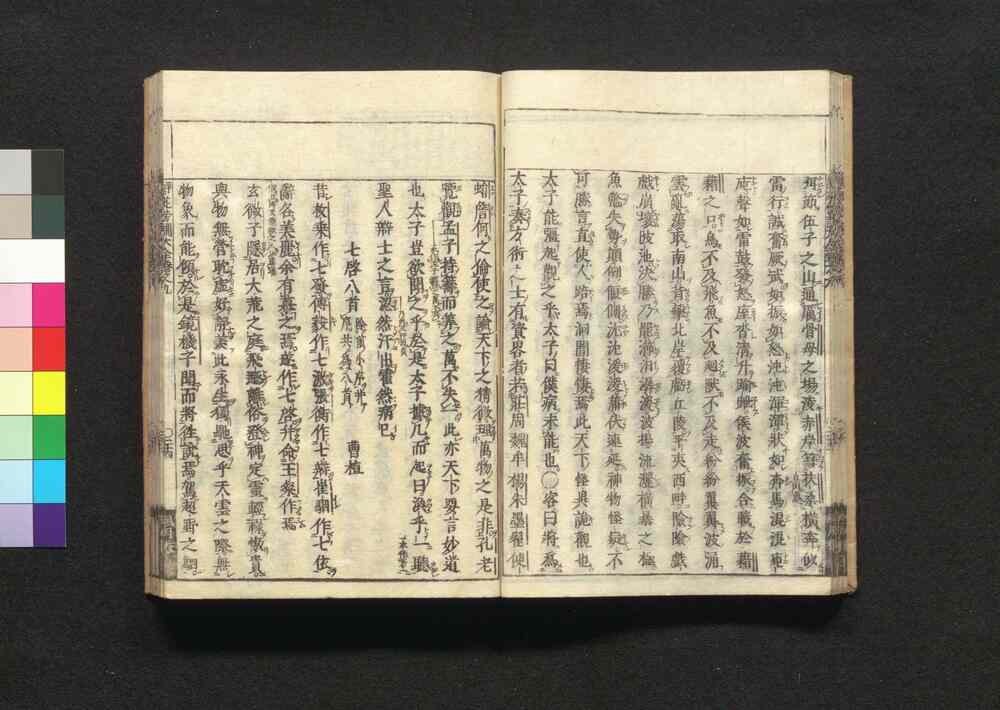 弭節伍子之山通厲骨母之場凌赤岸篲扶桑橫奔似
雷行誠奮厥武如振如怒沌沌渾渾狀如奔馬混混庉
庉聲如雷鼓發怒庢沓清升踰跇侯波奮振合戰於藉
藉之口鳥不及飛魚不及廻獸不及走紛紛翼翼波涌
雲亂蕩取南山背擊北岸覆虧丘陵平夷西畔險險戲
戲崩壞陂池決勝乃罷瀄汩潺湲披揚流灑橫暴之極
魚鼈失勢顛倒偃側沈沈湲湲蒲伏連延神物怪疑不
可勝言直使人踣焉洄闇悽愴焉此天下怪異詭觀也
太子能彊起觀之乎太子曰僕病未能也〇客曰將爲
太子奏方術之士有資畧者若莊周魏牟楊朱墨翟便
蜎詹何之倫使之論天下之精微理萬物之是非孔老
覽觀孟子持籌而筭之萬不失一此亦天下要言妙道
也太子豈欲聞之乎於是太子據几而起曰渙乎一聽
聖人辯士之言涊然汗出霍然病已
七啓八首 曹植
昔枚乘作七發傅毅作七激張衡作七辯崔駰作七依
辭各美麗余有慕之焉遂作七啓并命王粲作焉
玄微子隱居大荒之庭飛遯離俗澄神定靈輕祿傲貴
與物無營耽虛好靜羨此永生獨馳思乎天雲之際無
物象而能傾於是鏡機子聞而將往說焉駕超野之駟